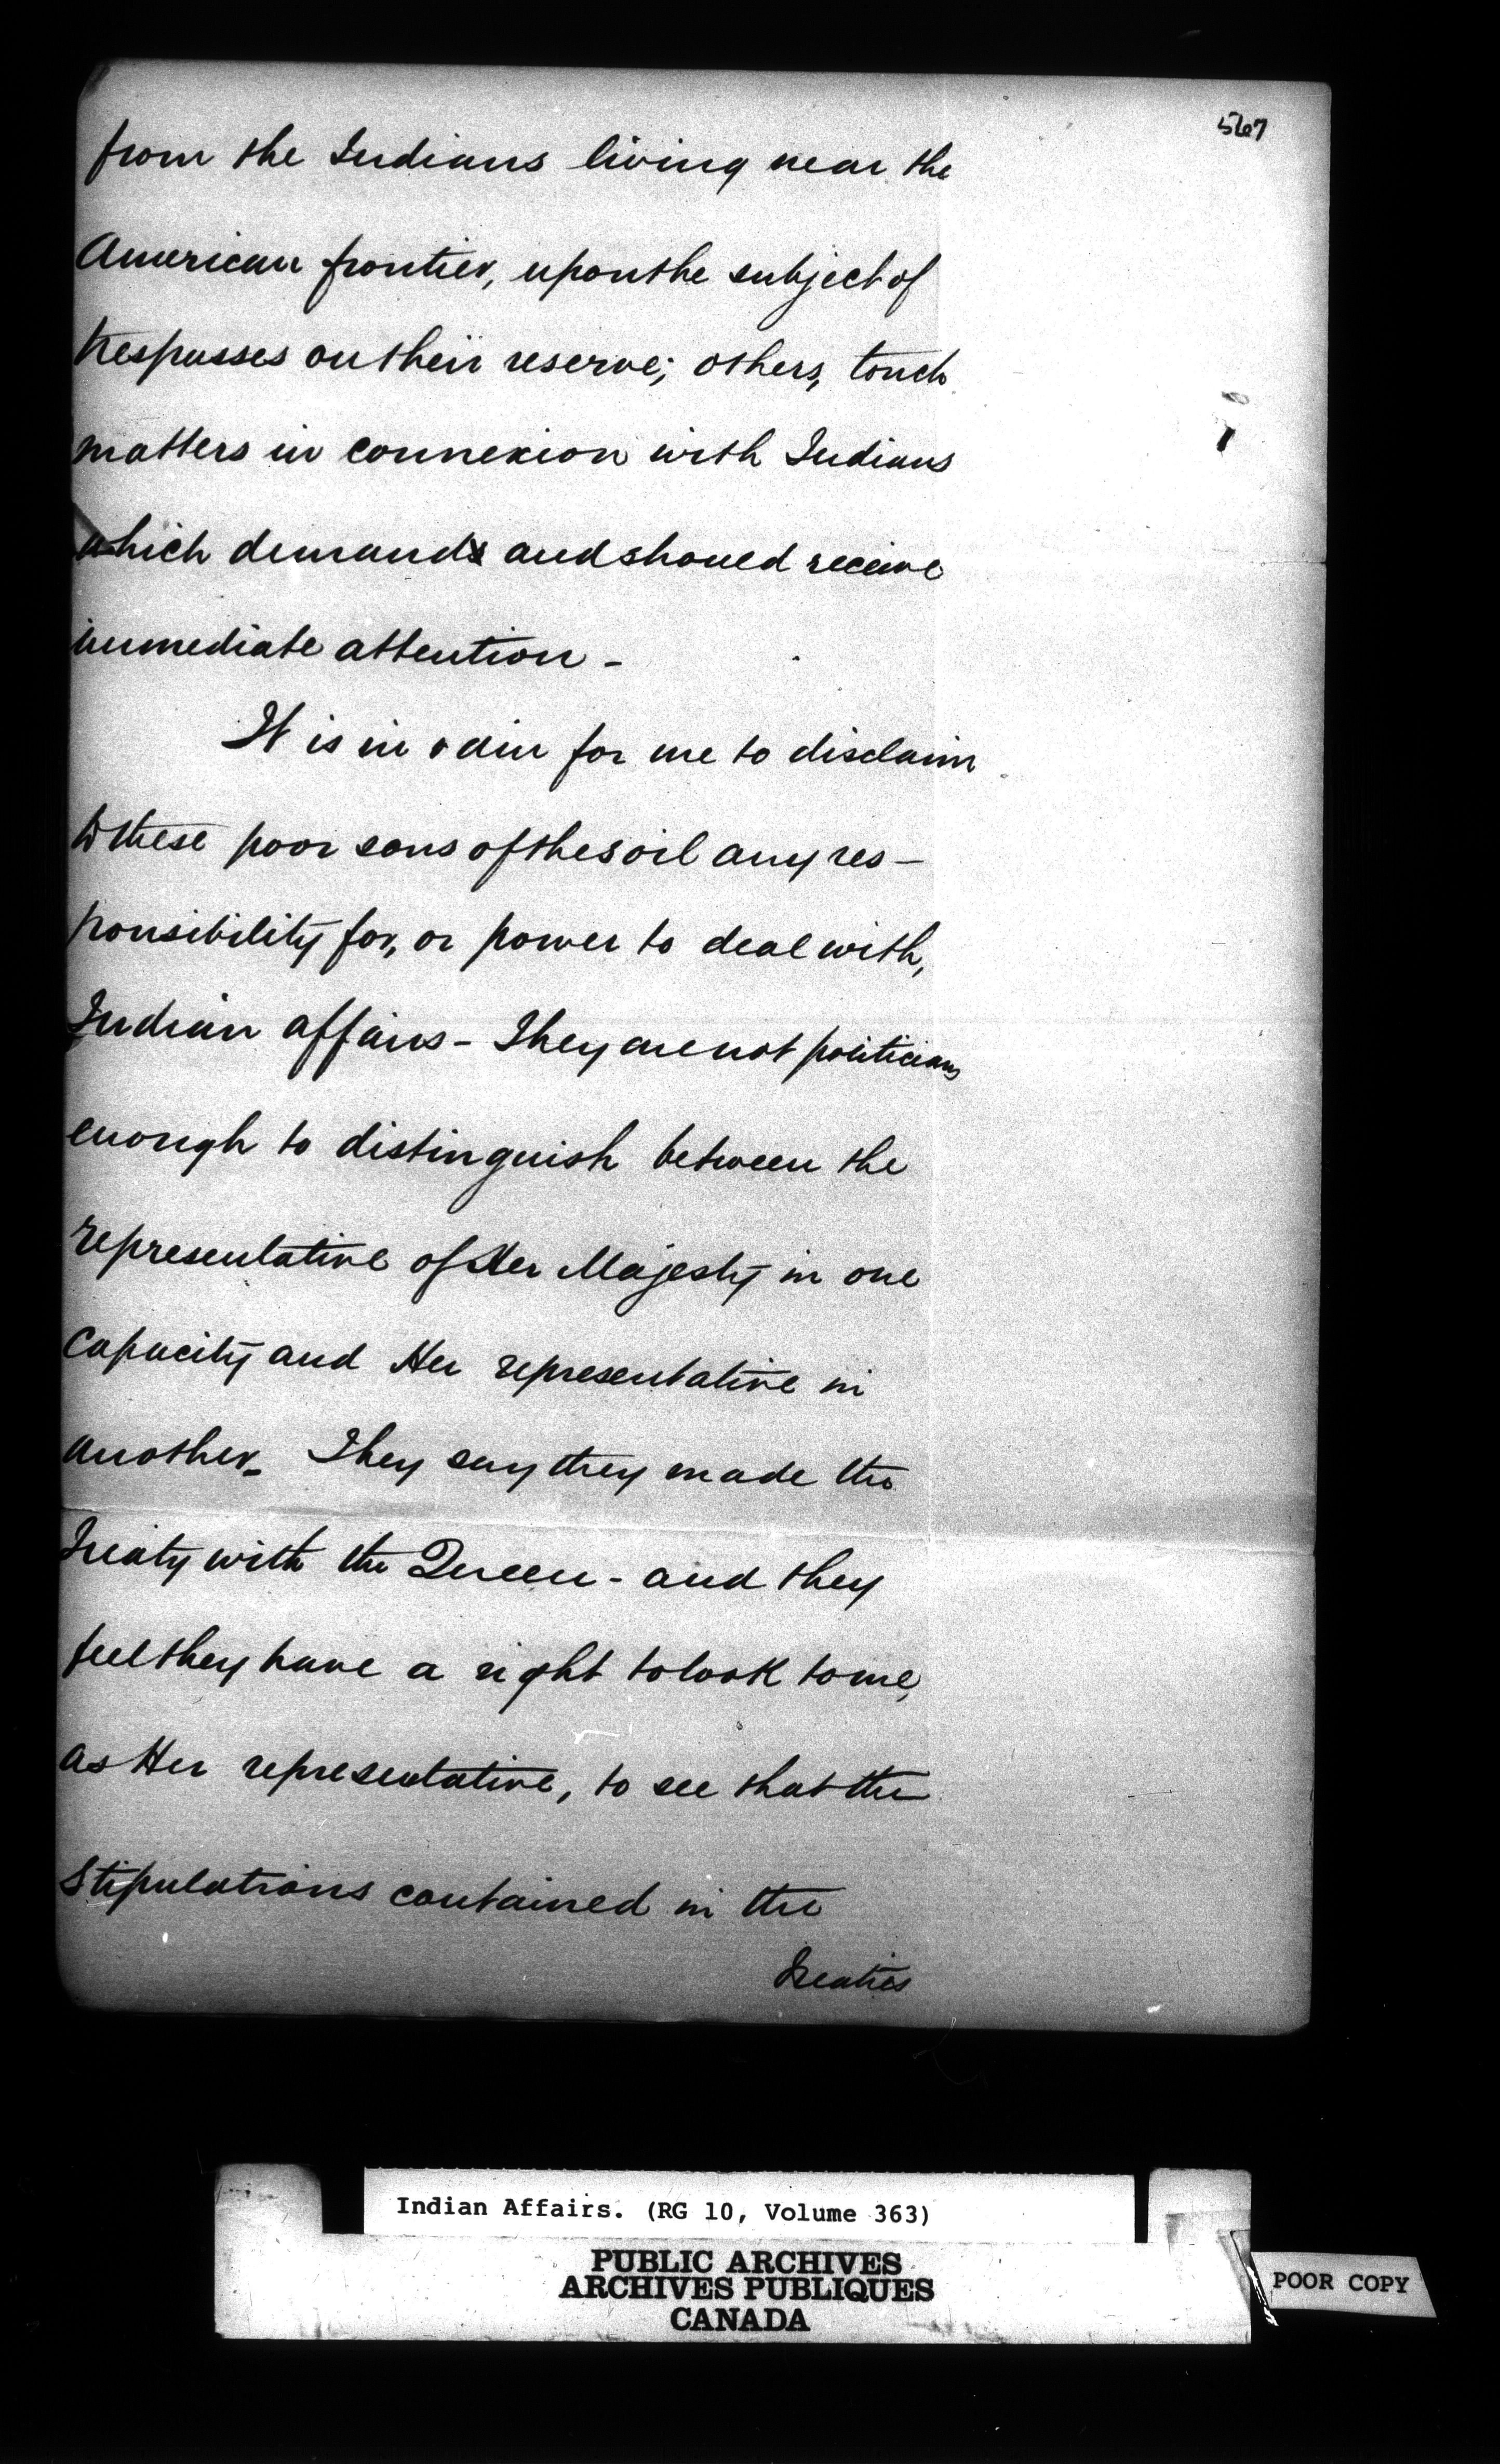 567
from the Indians living near the
American frontier, upon the subject of
trespasses on their reserve; others, touch
matters in connexion with Indians
which demand and should receive
immediate attention -
It is in vain for me to disclaim
to these poor sons of the soil any res-
ponsibility for, or power to deal with,
Indian affairs - They are not politicians
enough to distinguish between the
representative of Her Majesty in one
Capacity and Her representative in
another. They say they made the
Treaty with the Queen - and they
feel they have a right to look to me,
as Her representative, to see that the
Stipulations contained in the
Treaties
Indian Affairs. (RG 10, Volume 363)
PUBLIC ARCHIVES
ARCHIVES PUBLIQUES
CANADA
POOR COPY